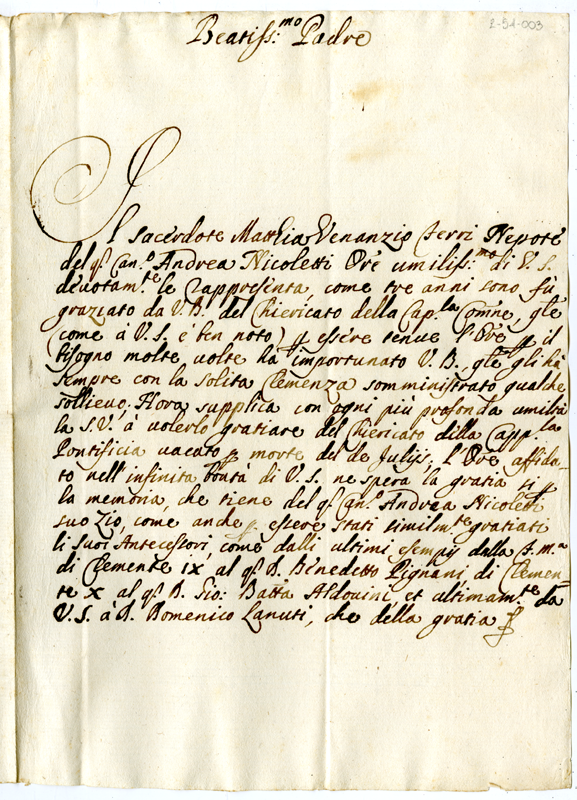 2-54-003
Beatiss:mo Padre
Il sacerdote Matthia Venanzio Terri Nepote
del q. Can.o Andrea Nicoletti Ore umiliss:mo di V.S.
devotam.te le rappresenta, come tre anni sono fù
graziato da V.B. del Chiericato della Cap.la Comne, gle
(come à V.S. è ben noto) p essere tenue l'Ore p il
bisogno molte volte ha importunato V.B., gle gli hà
sempre con la solita Clemenza somministrato qualche
sollievo; Hora supplica con ogni più profonda umiltà
la S.V. à volerlo gratiare del Chiericato della Capp.la
Pontificia vacato p morte del de Julijs, l'Ore affida-
to nell'infinita bontà di V.S. ne spera la gratia si p
la memoria, che tiene del q. Can.o Andrea Nicoletti
suo Zio, come anche p essere stati similm.te gratiati
li suoi Antecessori, come dalli ultimi esempij della f.m.a
di Clemente IX al q. D. Benedetto Pignani di Clemen-
te X al q. D. Gio: Batta Aldovini, et ultimam.te da
V.S. à D. Domenico Lanuti, che della gratia